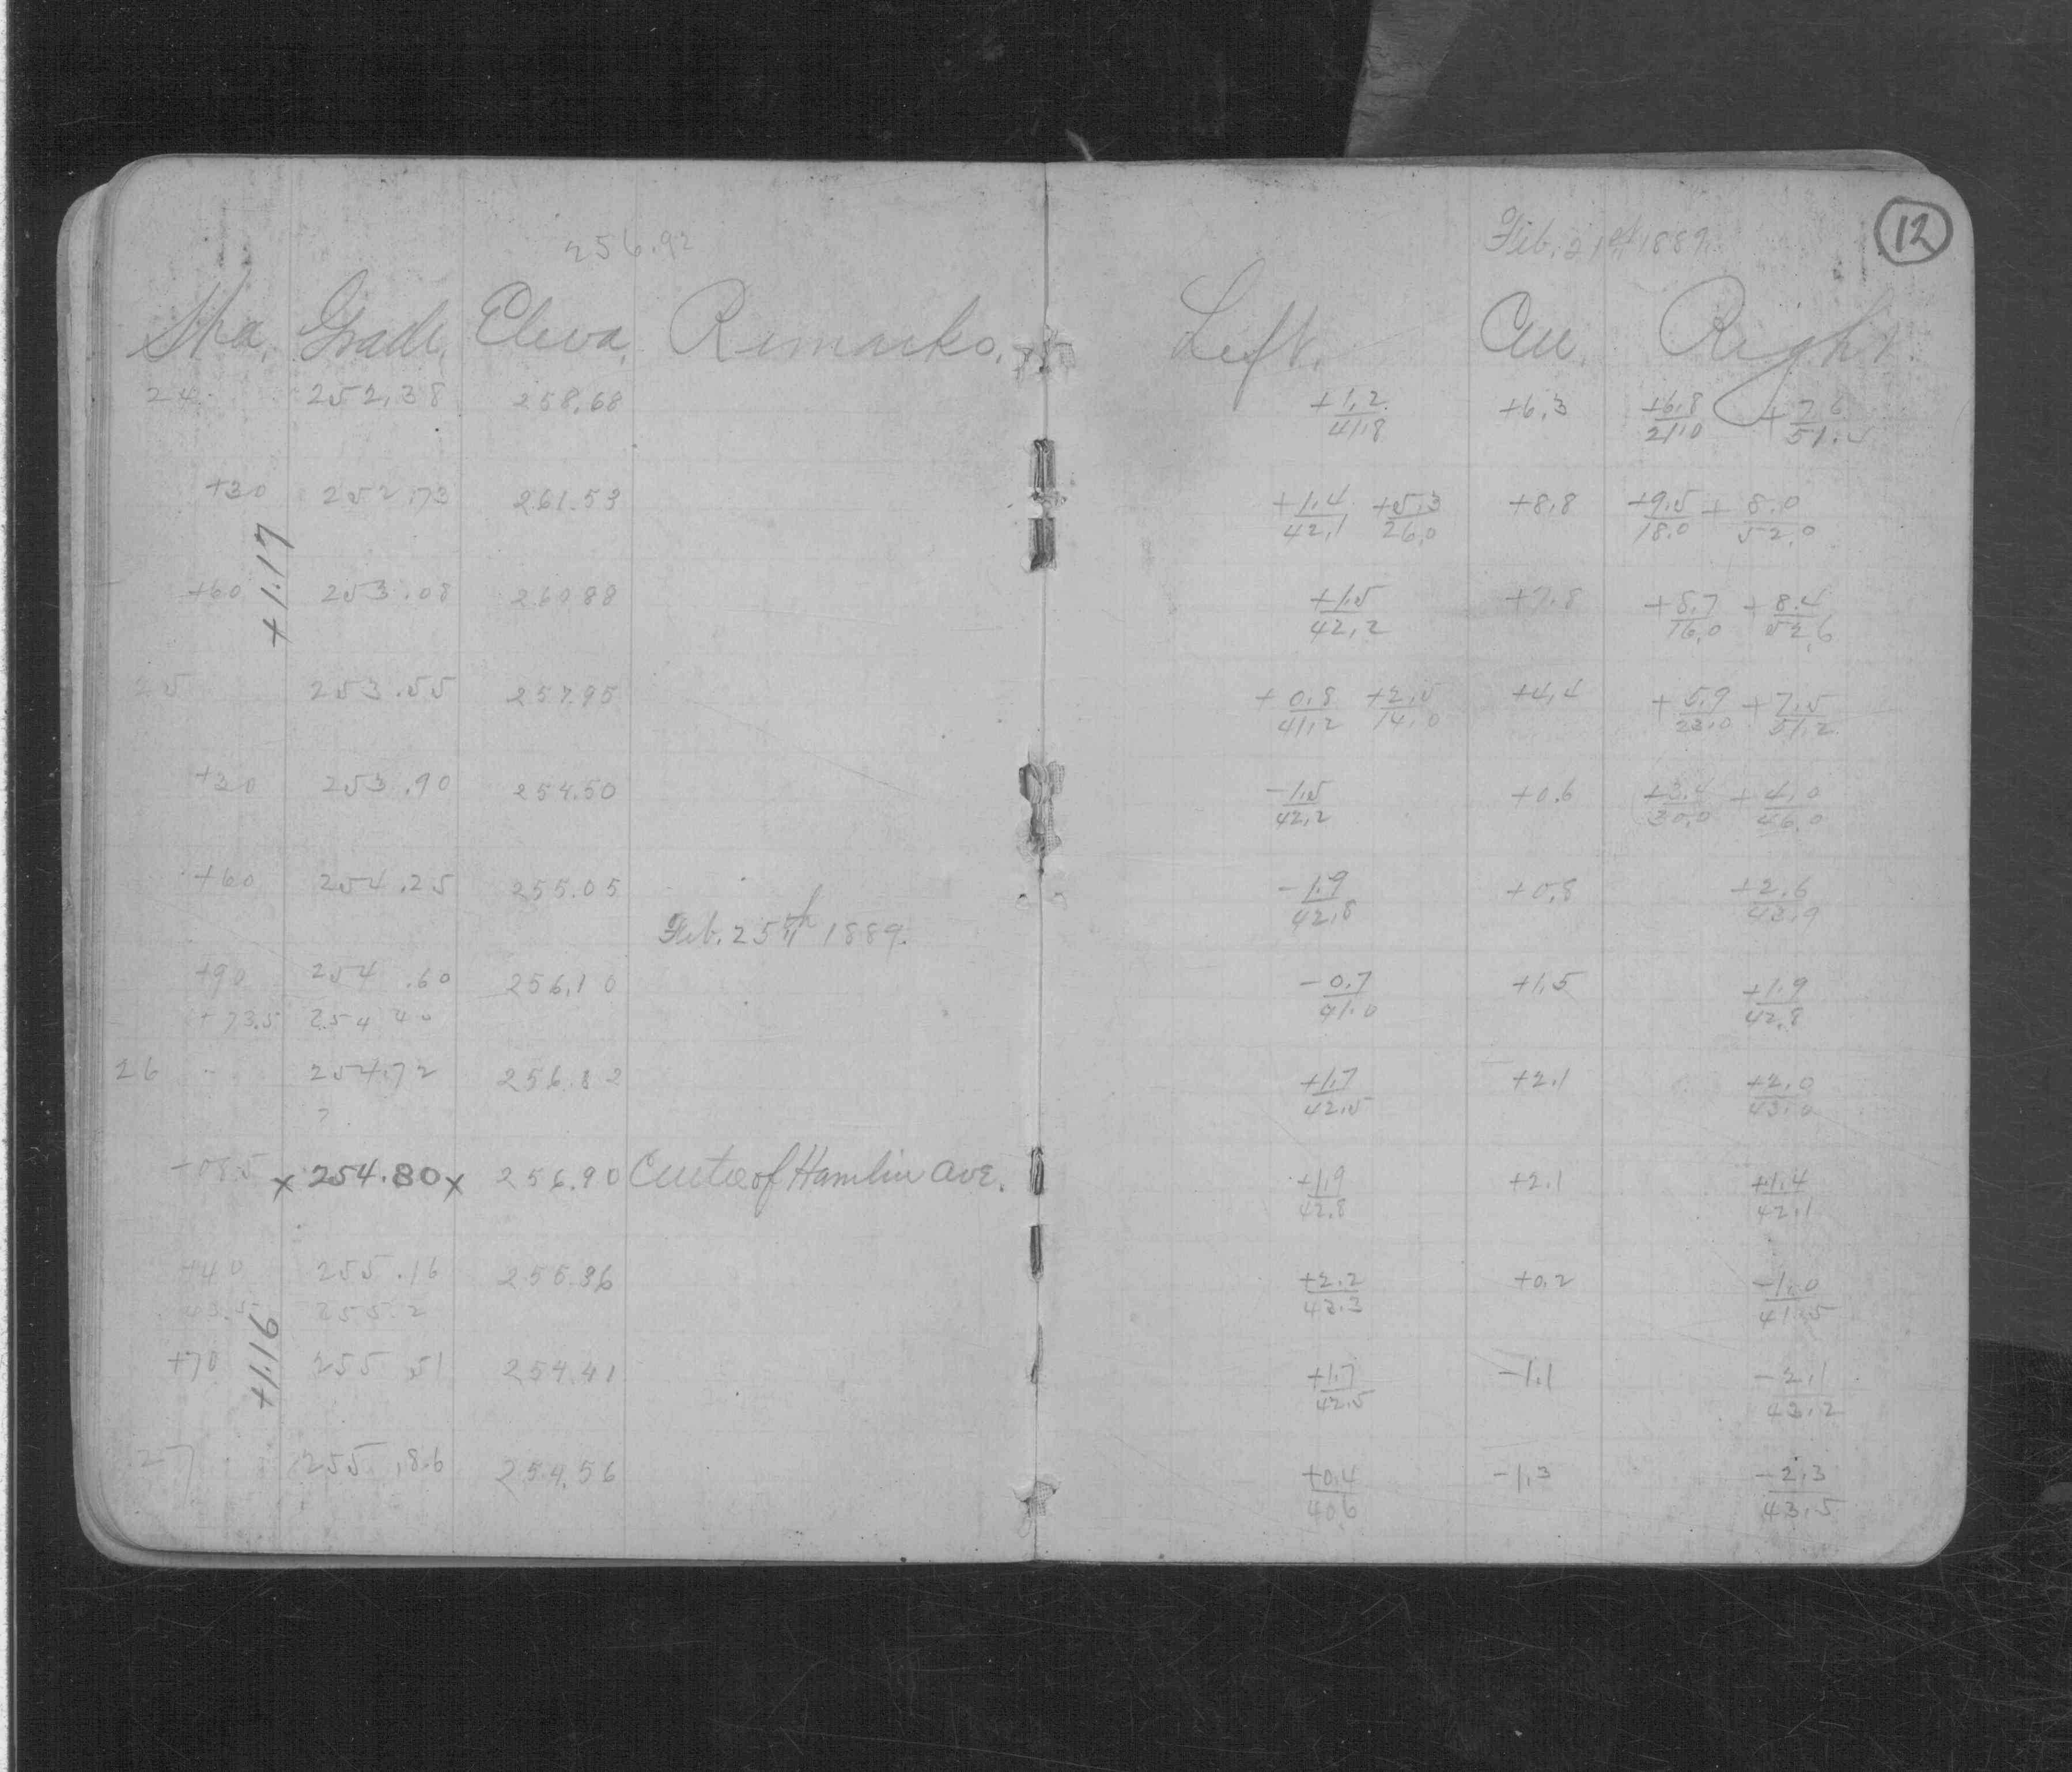 256.92 Feb. 21st 1889 12
Sta. Grade. Eleva. Remarks. Left. Cen. Right.
24 252.38 258.68 +1.2/41.8 +6.3 +6.8/21.0 +7.6/51.
+30 252.73 261.53 +1.4/42.1 +5.3/26.0 +8.8 +9.5/18.0 +8.0/52.0
+1.17
+60 253.08 260.88 +1.5/42.2 +7.8 +8.7/16.0 +8.4/52.6
25 253.55 257.95 +0.8/41.2 +2.5/14.0 +4.4 +5.9/23.0 +7.5/51.2
+30 253.90 254.50 -1.5/42.2 +0.6 +3.4/30.0 +4.0/46.0
+60 254.25 255.05 -1.9/42.8 +0.8 +2.6/43.9
Feb. 25th 1889.
+90 254.60 256.10 -0.7/41.0 +1.5 +1.9/42.8
+73.5 254 40
26 254.72 256.82 +1.7/42.5 +2.1 +2.0/43.0
?
+08.5 x 254.80 x 256.90 Center of Hamlin Ave. +1.9/42.8 +2.1 +1.4/42.1
+40 255.16 255.36 +2.2/43.3 +0.2 -1.0/41.5
43.5 255.2
+1.16
+70 255 51 254.41 +1.7/42.5 -1.1 -2.1/43.2
27 255.86 254.56 +0.4/40.6 -1.3 -2.3/43.5